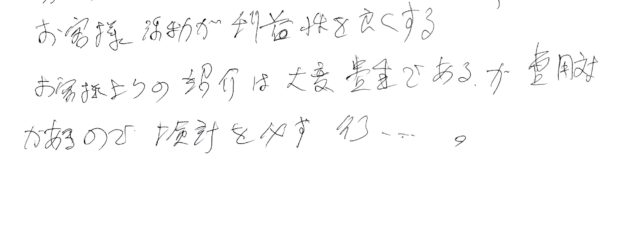 お客様活動が利益性を良くする
お客様よりの紹介は大変貴重である.が費用対
があるので検討を必ず行……。